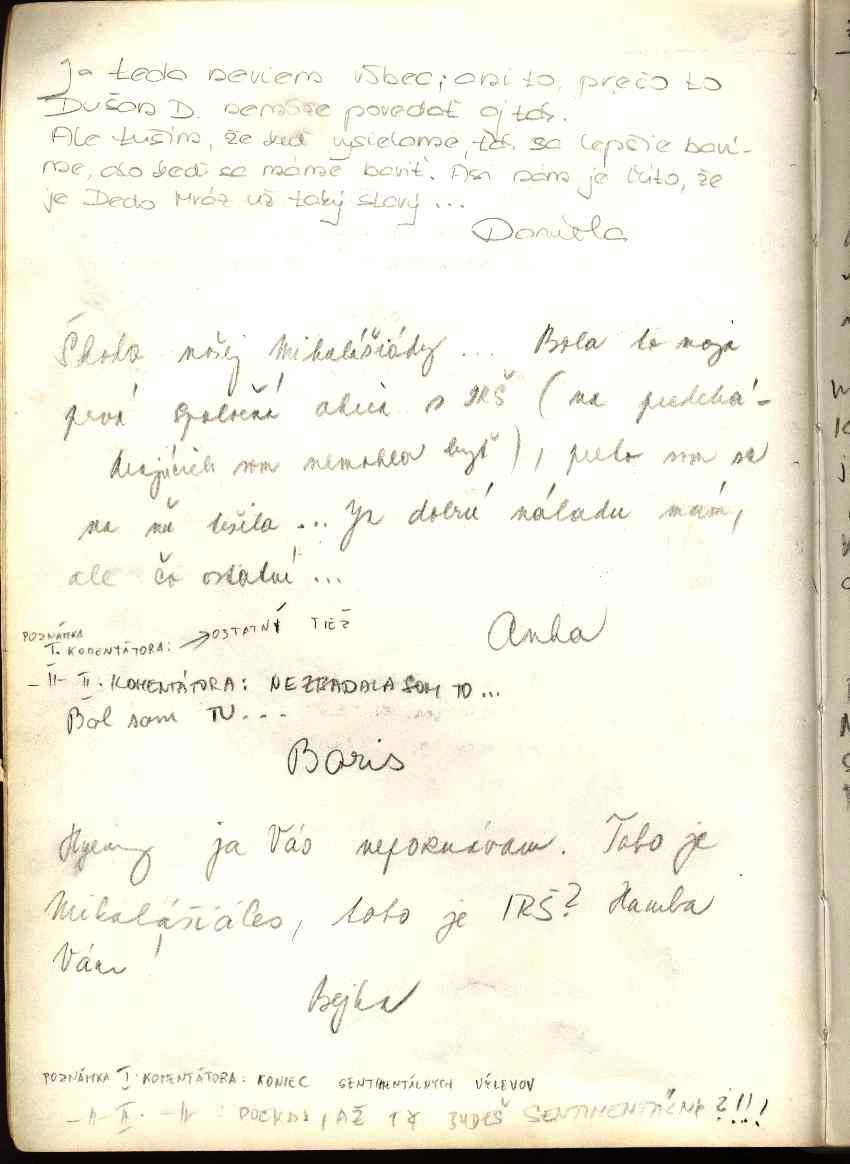 Ja teda neviem vôbec, ani to, prečo to
Dušan D. nemôže povedať aj tak.
Ale tuším, že keď vysielame, tak sa lepšie baví-
me, ako keď sa máme baviť. Asi nám je ľúto, že
je Dedo Mráz už taký starý ...
Daniela
Škoda našej Mikulášiády ... Bola to moja
prvá spoločná akcia s IRŠ (na predchá-
dzajúcich som nemohla byť), preto som sa
na ňu tešila ... Ja dobrú náladu mám,
ale čo ostatní ...
Anka
POZNÁMKA
I. KOMENTÁTORA: → OSTATNÝ TIEŽ
-II- II. KOMENTÁTORA: NEZBADALA SOM TO ...
Bol som TU ...
Boris
ja Vás nepoznávam. Toto je
Mikulášiáles, toto je IRŠ? Hanba
Vám!
Bejka
POZNÁMKA I. KOMENTÁTORA: KONIEC SENTIMENTÁLNYCH VÝLEVOV
-II- II. -II- : POČKAJ, AŽ TY BUDEŠ SENTIMENTÁLNA ?!!!